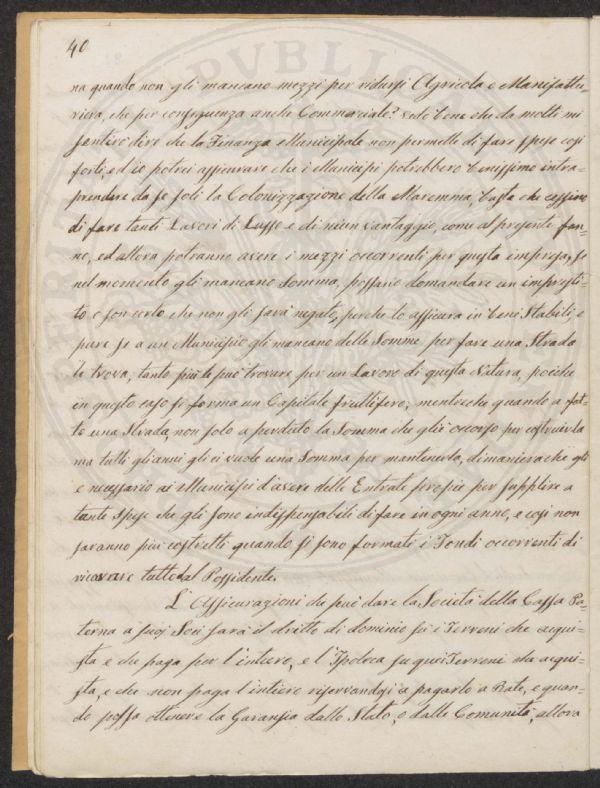 40
na quando non gli mancano mezzi per ridursi Agricola e Manifattu-
riera, che per conseguenza anche Commerciale? vedo bene che da molti mi
sentirò dire che la Finanza Municipale non permette di fare spese così
forti, ed io potrei assicurare che i Municipi potrebbero benissimo intra-
prendere da se soli la Colonizzazione della Maremma, basta che cessino
di fare tanti Lavori di Lusso e di niun vantaggio, come al presente fan-
no, ed allora potranno avere i mezzi occorrenti per questa impresa, se
nel momento gli mancano Somma, possano domandare un impresti-
to e son certo che non gli sarà negato, perche lo assicura in beni Stabili, e
pure se a un Municipio gli mancano delle Somme per fare una Strada
le trova, tanto più le può trovare per un Lavoro di questa Natura, poiche
in questo caso si forma un Capitale fruttifero, mentreche quando a fat-
to una Strada, non solo a perduto la Somma che gli è occorso per costruirla
ma tutti gli anni gli ci vuole una Somma per mantenerla, dimanierache gli
e necessario ai Municipi d'avere delle Entrate proprie per supplire a
tante Spese che gli sono indispensabili di fare in ogni anno, e così non
saranno più costretti quando si sono formati i Fondi occorrenti di
ricavare tutto dal Possidente.
L'Assicurazioni che può dare la Società della Cassa Pa-
terna a suoi Soci sarà il dritto di dominio su i Terreni che acqui-
sta e che paga per l'intiero, e l'Ipoteca su quei Terreni che acqui-
sta, e che non paga l'intiero riservandosi a pagarlo a Rate, e quan-
do possa ottenere la Garanzia dallo Stato, o dalle Comunità, allora
PVBLICA